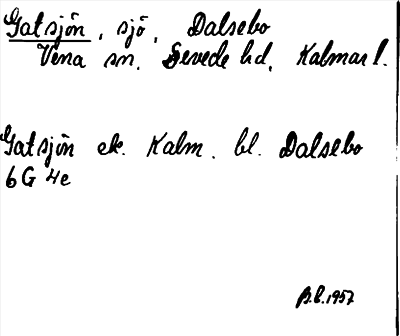 Gatsjön, sjö, Dalsebo
Vena sn. Sevede hd, Kalmar l.
Gatsjön ek. Kalm. bl. Dalsebo
6G 4e
B.E. 1957